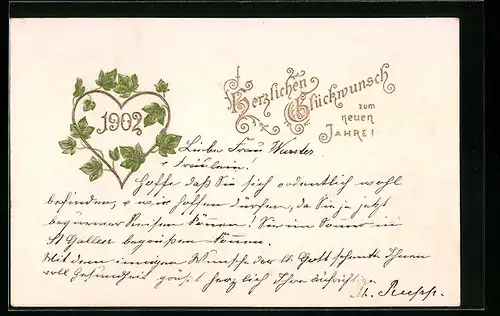 1902
Herzlichen
Glückwunsch
zum
neuen
JAHRE!
Liebe Frau Wurster
Fräulein!
Hoffe daß Sie sich ordentlich wohl
befinden, & wir hoffen dürfen, da Sie ja jetzt
Reisen können! Sie im Sommer in
St Gallen begrüßen können.
Mit dem innigen Wunsche der lb. Gott schenke Ihnen
voll Gesundheit grüßt herzlich Ihre aufrichtige
Rupp.